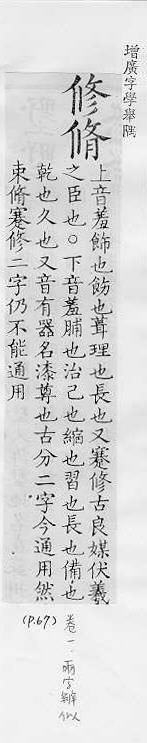 增廣字學舉隅
修脩
上音羞飾也飭也葺理也長也又蹇修古良媒伏羲
之臣也○下音羞脯也治己也縮也習也長也備也
乾也久也又音有器名漆尊也古分二字今通用然
束脩蹇修二字仍不能通用
(P.67)
卷一
兩字辨似